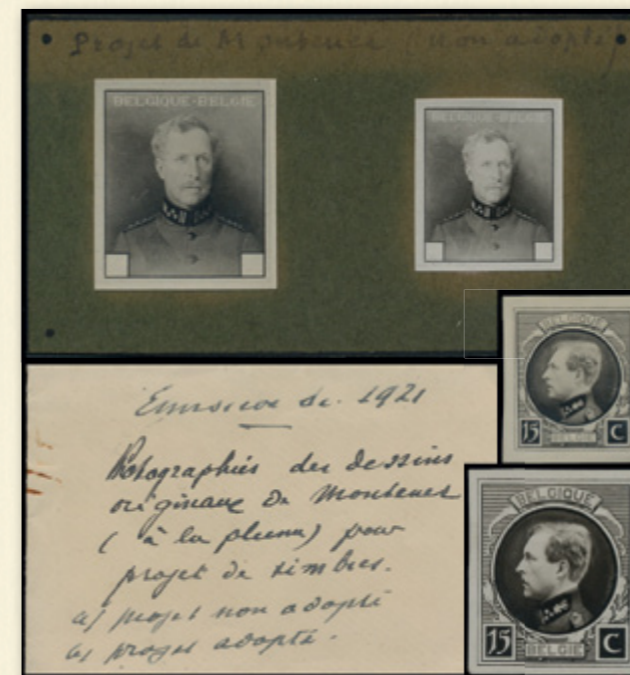 Projet de Montenez non adopté
BELGIQUE·BELGIE
BELGIQUE·BELGIE
BELGIQUE
15 C
BELGIE
Emission de 1921
Photographies des dessins
originaux de Montenez
(à la plume) pour
projet de timbres.
a) projet non adopté
b) projet adopté.
BELGIQUE
15 C
BELGIE